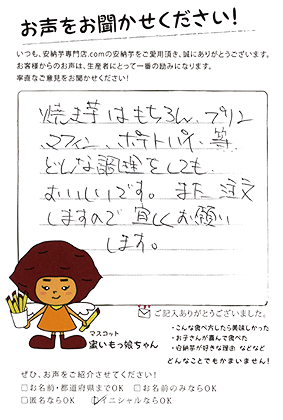 お声をお聞かせください!
いつも、安納芋専門店.comの安納芋をご愛用頂き、誠にありがとうございます。
お客様からのお声は、生産者にとって一番の励みになります。
率直なご意見をお聞かせください!
焼き芋はもちろん、プリン
マフィン、ポテトパイ、等
どんな調理をしても
おいしいです。また注文
しますので宜しくお願い
します。
ご記入ありがとうございました。
マスコット
蜜いもっ娘ちゃん
・こんな食べ方したら美味しかった
・お子さんが喜んで食べた
・安納芋が好きな理由 などなど
どんなことでもかまいません!
ぜひ、お声をご紹介させてください!
□お名前・都道府県までOK □お名前のみならOK
□匿名ならOK ☑イニシャルならOK